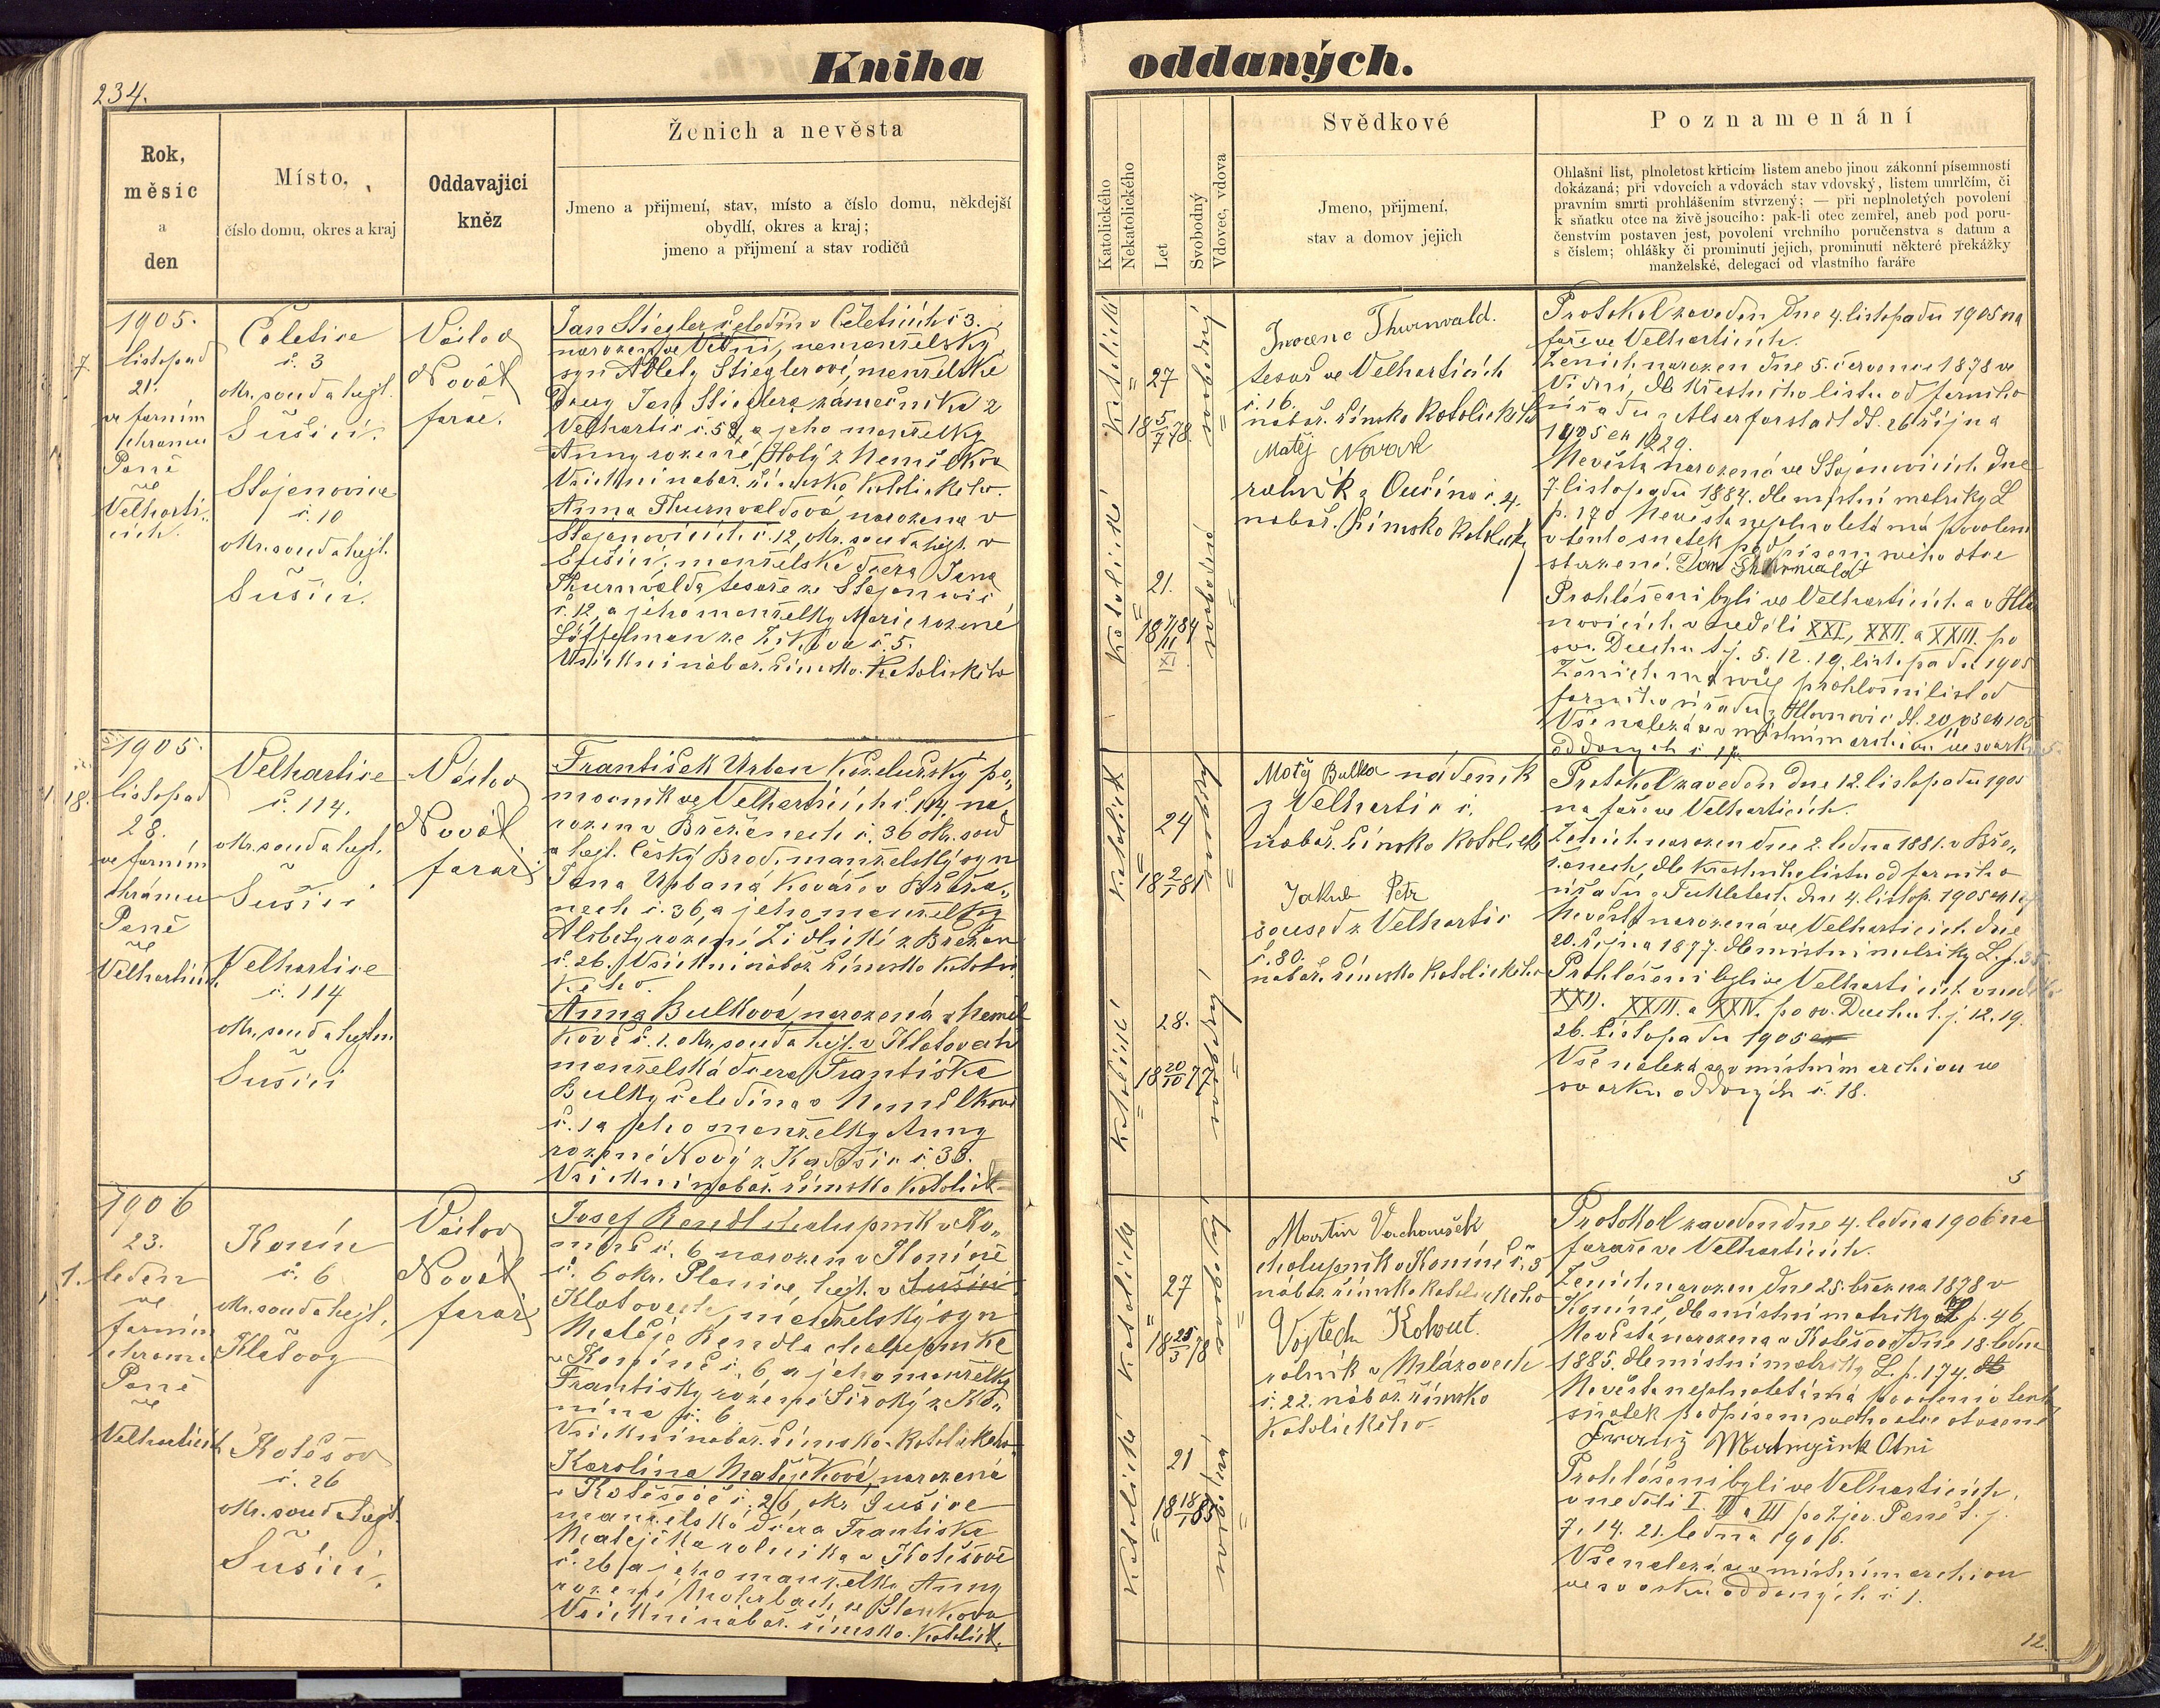 Kniha oddaných.
234.
Rok,
měsíc
a
den
Místo,
číslo domu, okres a kraj
Oddavající
kněz
Ženich a nevěsta
Jmeno a přijmení, stav, místo a číslo domu, někdejší
obydlí, okres a kraj;
jmeno a přijmení a stav rodičů
Katolického
Nekatolického
Let
Svobodný
Vdovec, vdova
Svědkové
Jmeno, přijmení,
stav a domov jejich
Poznamenání
Ohlašní list, plnoletost křticím listem anebo jinou zákonní písemností
dokázaná; při vdovcích a vdovách stav vdovský, listem umrlčím, či
pravním smrti prohlášením stvrzený; — při neplnoletých povolení
k sňatku otce na živě jsoucího: pak-li otec zemřel, aneb pod poru-
čenstvím postaven jest, povolení vrchního poručenstva s datum a
s číslem; ohlášky či prominutí jejich, prominutí některé překážky
manželské, delegací od vlastního faráře
1905.
listopad
21.
ve farním
chrámu
Páně
ve
Velharti-
cích.
Čeletice
č. 3
okr. soud a hejt.
Sušici.
Stojanovice
č. 10
okr. soud a hejt.
Sušici.
Václav
Novák
farář.
Jan Stiegler čeledín v Čeleticích č 3.
narozen ve Vídni, nemanželský
syn Adlety Stieglerové, manželské
dcery Jana Stieglera zámečníka z
Velhartic č. 58, a jeho manželky
Anny rozené Holý z Nemilkova
Všichni nábož. římsko katolického.
Anna Thurnvaldová narozena v
Stojanovicích č. 12, okr. soud a hejt. v
Sušici, manželská dcera Jana
Thurnvalda tesaře ze Stojanovic
č. 12, a jeho manželky Marie rozené
Löffelman ze Žikova č. 5.
Všichni nábož. římsko-katolického
katolické
27
18 5/7 78.
svobodný
katolické
21.
18 7/11 84
XI
svobodná
Thurnvald.
tesař ve Velharticích
č. 16.
nábož. římsko katolického
Matěj Novák
rolník z Čučína č. 4.
nábož. římsko katolick
Protokol zaveden dne 4. listopadu 1905 na
faře ve Velharticích.
Ženich narozen dne 5. července 1878 ve
Vídni, dle křestního listu od farního
úřadu z Alserforstadt dt. 26 října
1905 čís 1229.
Nevěsta narozená ve Stojanovicích dne
7 listopadu 1884. dle místní matriky L
p. 170 Nevěsta neplnoletá má povolení
v tento sňatek podpisem svého otce
stvrzené. Jan Thurnvald
Prohlášeni byli ve Velharticích a v Hla
novicích v neděli XXI, XXII. a XXIII. po
sv. Duchu t. j. 5. 12. 19. listopadu 1905
Ženich má svůj prohlášní list od
farního úřadu z Hlavnovic dt. 20
Vše nalezá se v místním archivu ve svazku
oddaných č. 17.
1905.
18.
listopad
28.
ve farním
chrámu
Páně
ve
Velharticích
Velhartice
č. 114.
okr. soud a hejt.
Sušici
Velhartice
č. 114
okr. soud a hejtm
Sušici
Václav
Novák
farář
František Urban koželužský po-
mocník ve Velharticích č. 114, na-
rozen v Břežanech č. 36 okr. soud
a hejt. Český Brod, manželský syn
Jana Urbana kováře v Břeža-
nech č. 36, a jeho manželky
Alžběty rozené Židlické z Břežan
č. 26. Všichni nábož. římsko katoli-
kého.
Anna Bulková, narozená v Nemil
kově č. 1. okr. soud a hejt. v Klatovech
manželská dcera Františka
Bulky čeledína v Nemilkově
č. 1 a jeho manželky Anny
rozené Nový z Kadešic č. 38.
Všichni nábož. římsko katolick
katolick
24
18 2/1 81
svobodný
katolické
28.
18 20/10 77
svobodná
Matěj Bulka nádeník
z Velhartic č.
nábož. římsko katolick
Jakub Petr
soused z Velhartic
č. 80.
nábož. římsko katolického
Protokol zaveden dne 12. listopadu 1905
na faře ve Velharticích.
Ženich narozen dne 2. ledna 1881. v Bře-
žanech, dle křestního listu od farního
úřadu z Tuklatech. dne 4. listop. 1905
Nevěsta narozená ve Velharticích dne
20. října 1877. dle místní matriky L. p. 35
Prohlášeni byli ve Velharticích v neděli
XXII. XXIII. a XXIV. po sv. Duchu t. j. 12. 19.
26. listopadu 1905
Vše nalezá se v místním archivu ve
svazku oddaných č. 18.
5
1906
1.
23.
leden
ve
farním
chrámu
Páně
ve
Velharticích
Konín
č. 6
okr. soud a hejt.
Klatovy
Kolešov
č. 26
okr. soud a hejt.
Sušici.
Václav
Novák
farář
Josef Rendl chalupník v Ko-
níně č. 6 narozen v Koníně
č. 6 okr. Planice, hejt. v Sušici
Klatovech, manželský syn
Matěje Rendla chalupníka
v Koníně č. 6, a jeho manželky
Františky rozené Široký z Ko-
nína č. 6.
Všichni nábož. římsko-katolického
Karolina Matějčková narozená
v Kolešově č. 26, okr. Sušice
manželská dcera Františka
Matějčka rolníka v Kolešově
č. 26 a jeho manželky Anny
rozené Mohrbach ze Stankova
Všichni nábož. římsko-katolick.
katolické
27
18 25/3 78
svobodný
katolické
21
18 18/1 85
svobodná
Martin Vachoušek
chalupník v Koníně č. 3
nábož. římsko katolického
Vojtěch Kohout.
rolník v Mlázovech
č. 22. nábož. římsko
katolického.
Protokol zaveden dne 4. ledna 1906 na
faře ve Velharticích.
Ženich narozen dne 25. března 1878 v
Koníně, dle místní matriky p. 46,
Nevěsta narozena v Kolešově dne 18. ledna
1885. dle místní matriky L. p. 174.
Nevěsta neplnoletá má povolení v tento
sňatek podpisem svého otce stvrzené
Prohlášeni byli ve Velharticích,
v neděli I. II a III po Zjev. Páně t. j.
7. 14. 21. ledna 1906.
Vše nalezá se v místním archivu
ve svazku oddaných č 1.
12.